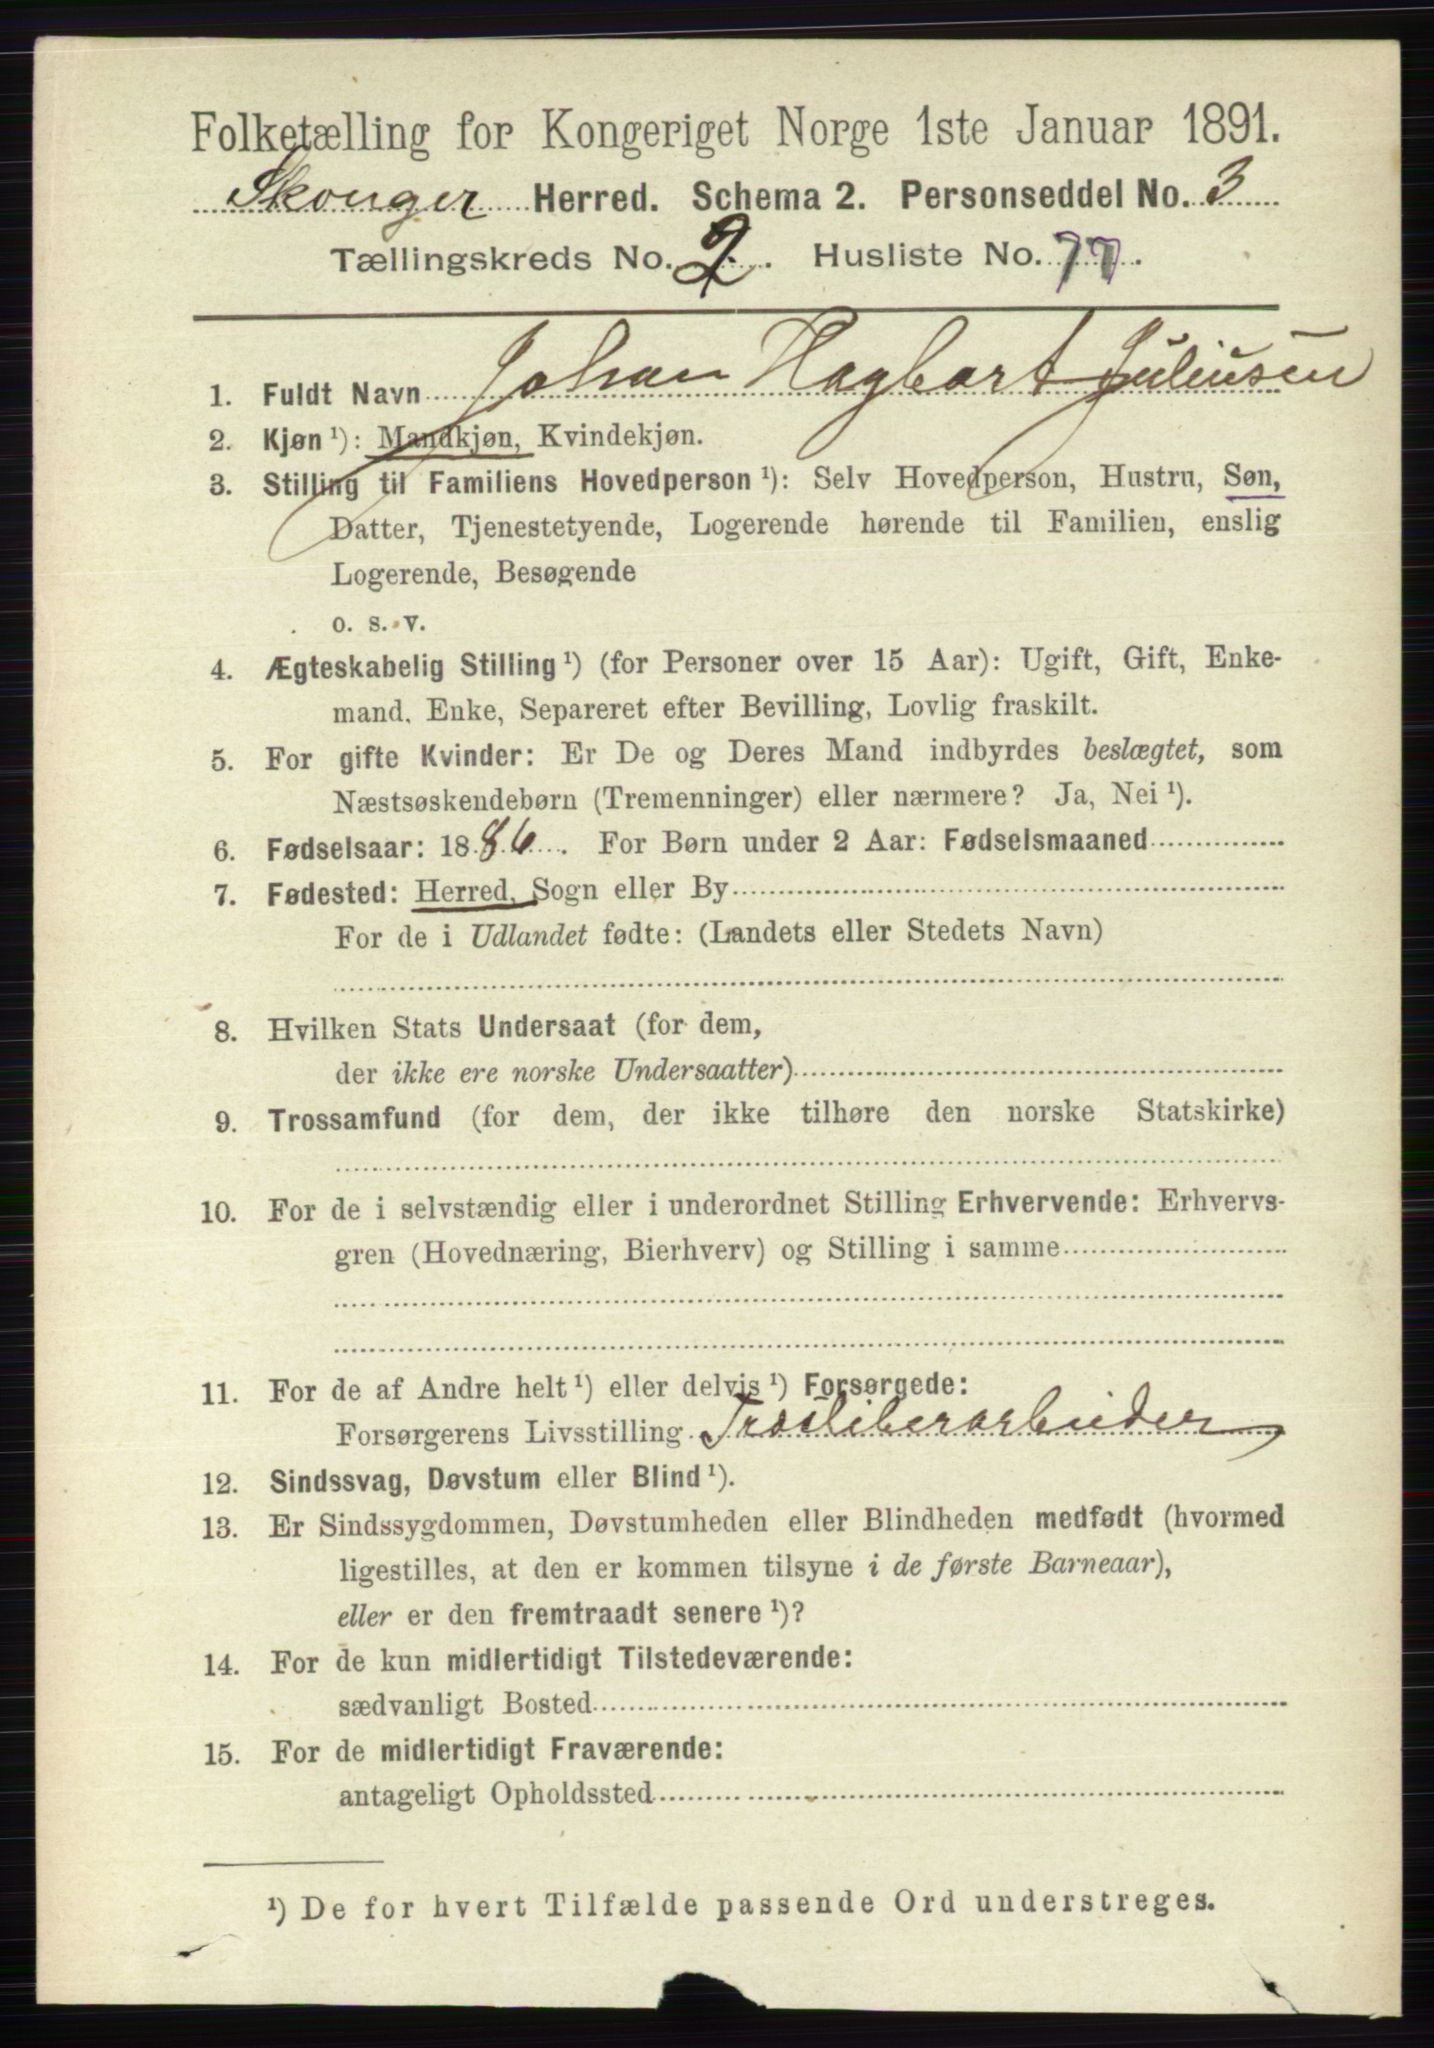 Folketælling for Kongeriget Norge 1ste Januar 1891.
Skouger Herred. Schema 2. Personseddel No. 3
Tællingskreds No. 2. Husliste No. 77.
1. Fuldt Navn Johan Hagbart Juliusen
2. Kjøn ¹): Mandkjøn, Kvindekjøn.
3. Stilling til Familiens Hovedperson ¹): Selv Hovedperson, Hustru, Søn,
Datter, Tjenestetyende, Logerende hørende til Familien, enslig
Logerende, Besøgende
o. s. v.
4. Ægteskabelig Stilling ¹) (for Personer over 15 Aar): Ugift, Gift, Enke-
mand, Enke, Separeret efter Bevilling, Lovlig fraskilt.
5. For gifte Kvinder: Er De og Deres Mand indbyrdes beslægtet, som
Næstsøskendebørn (Tremenninger) eller nærmere? Ja, Nei ¹).
6. Fødselsaar: 1886. For Børn under 2 Aar: Fødselsmaaned
7. Fødested: Herred, Sogn eller By
For de i Udlandet fødte: (Landets eller Stedets Navn)
8. Hvilken Stats Undersaat (for dem,
der ikke ere norske Undersaatter)
9. Trossamfund (for dem, der ikke tilhøre den norske Statskirke)
10. For de i selvstændig eller i underordnet Stilling Erhvervende: Erhvervs-
gren (Hovednæring, Bierhverv) og Stilling i samme
11. For de af Andre helt ¹) eller delvis ¹) Forsørgede:
Forsørgerens Livsstilling Træsliberarbeider
12. Sindssvag, Døvstum eller Blind ¹).
13. Er Sindssygdommen, Døvstumheden eller Blindheden medfødt (hvormed
ligestilles, at den er kommen tilsyne i de første Barneaar),
eller er den fremtraadt senere ¹)?
14. For de kun midlertidigt Tilstedeværende:
sædvanligt Bosted
15. For de midlertidigt Fraværende:
antageligt Opholdssted
¹) De for hvert Tilfælde passende Ord understreges.